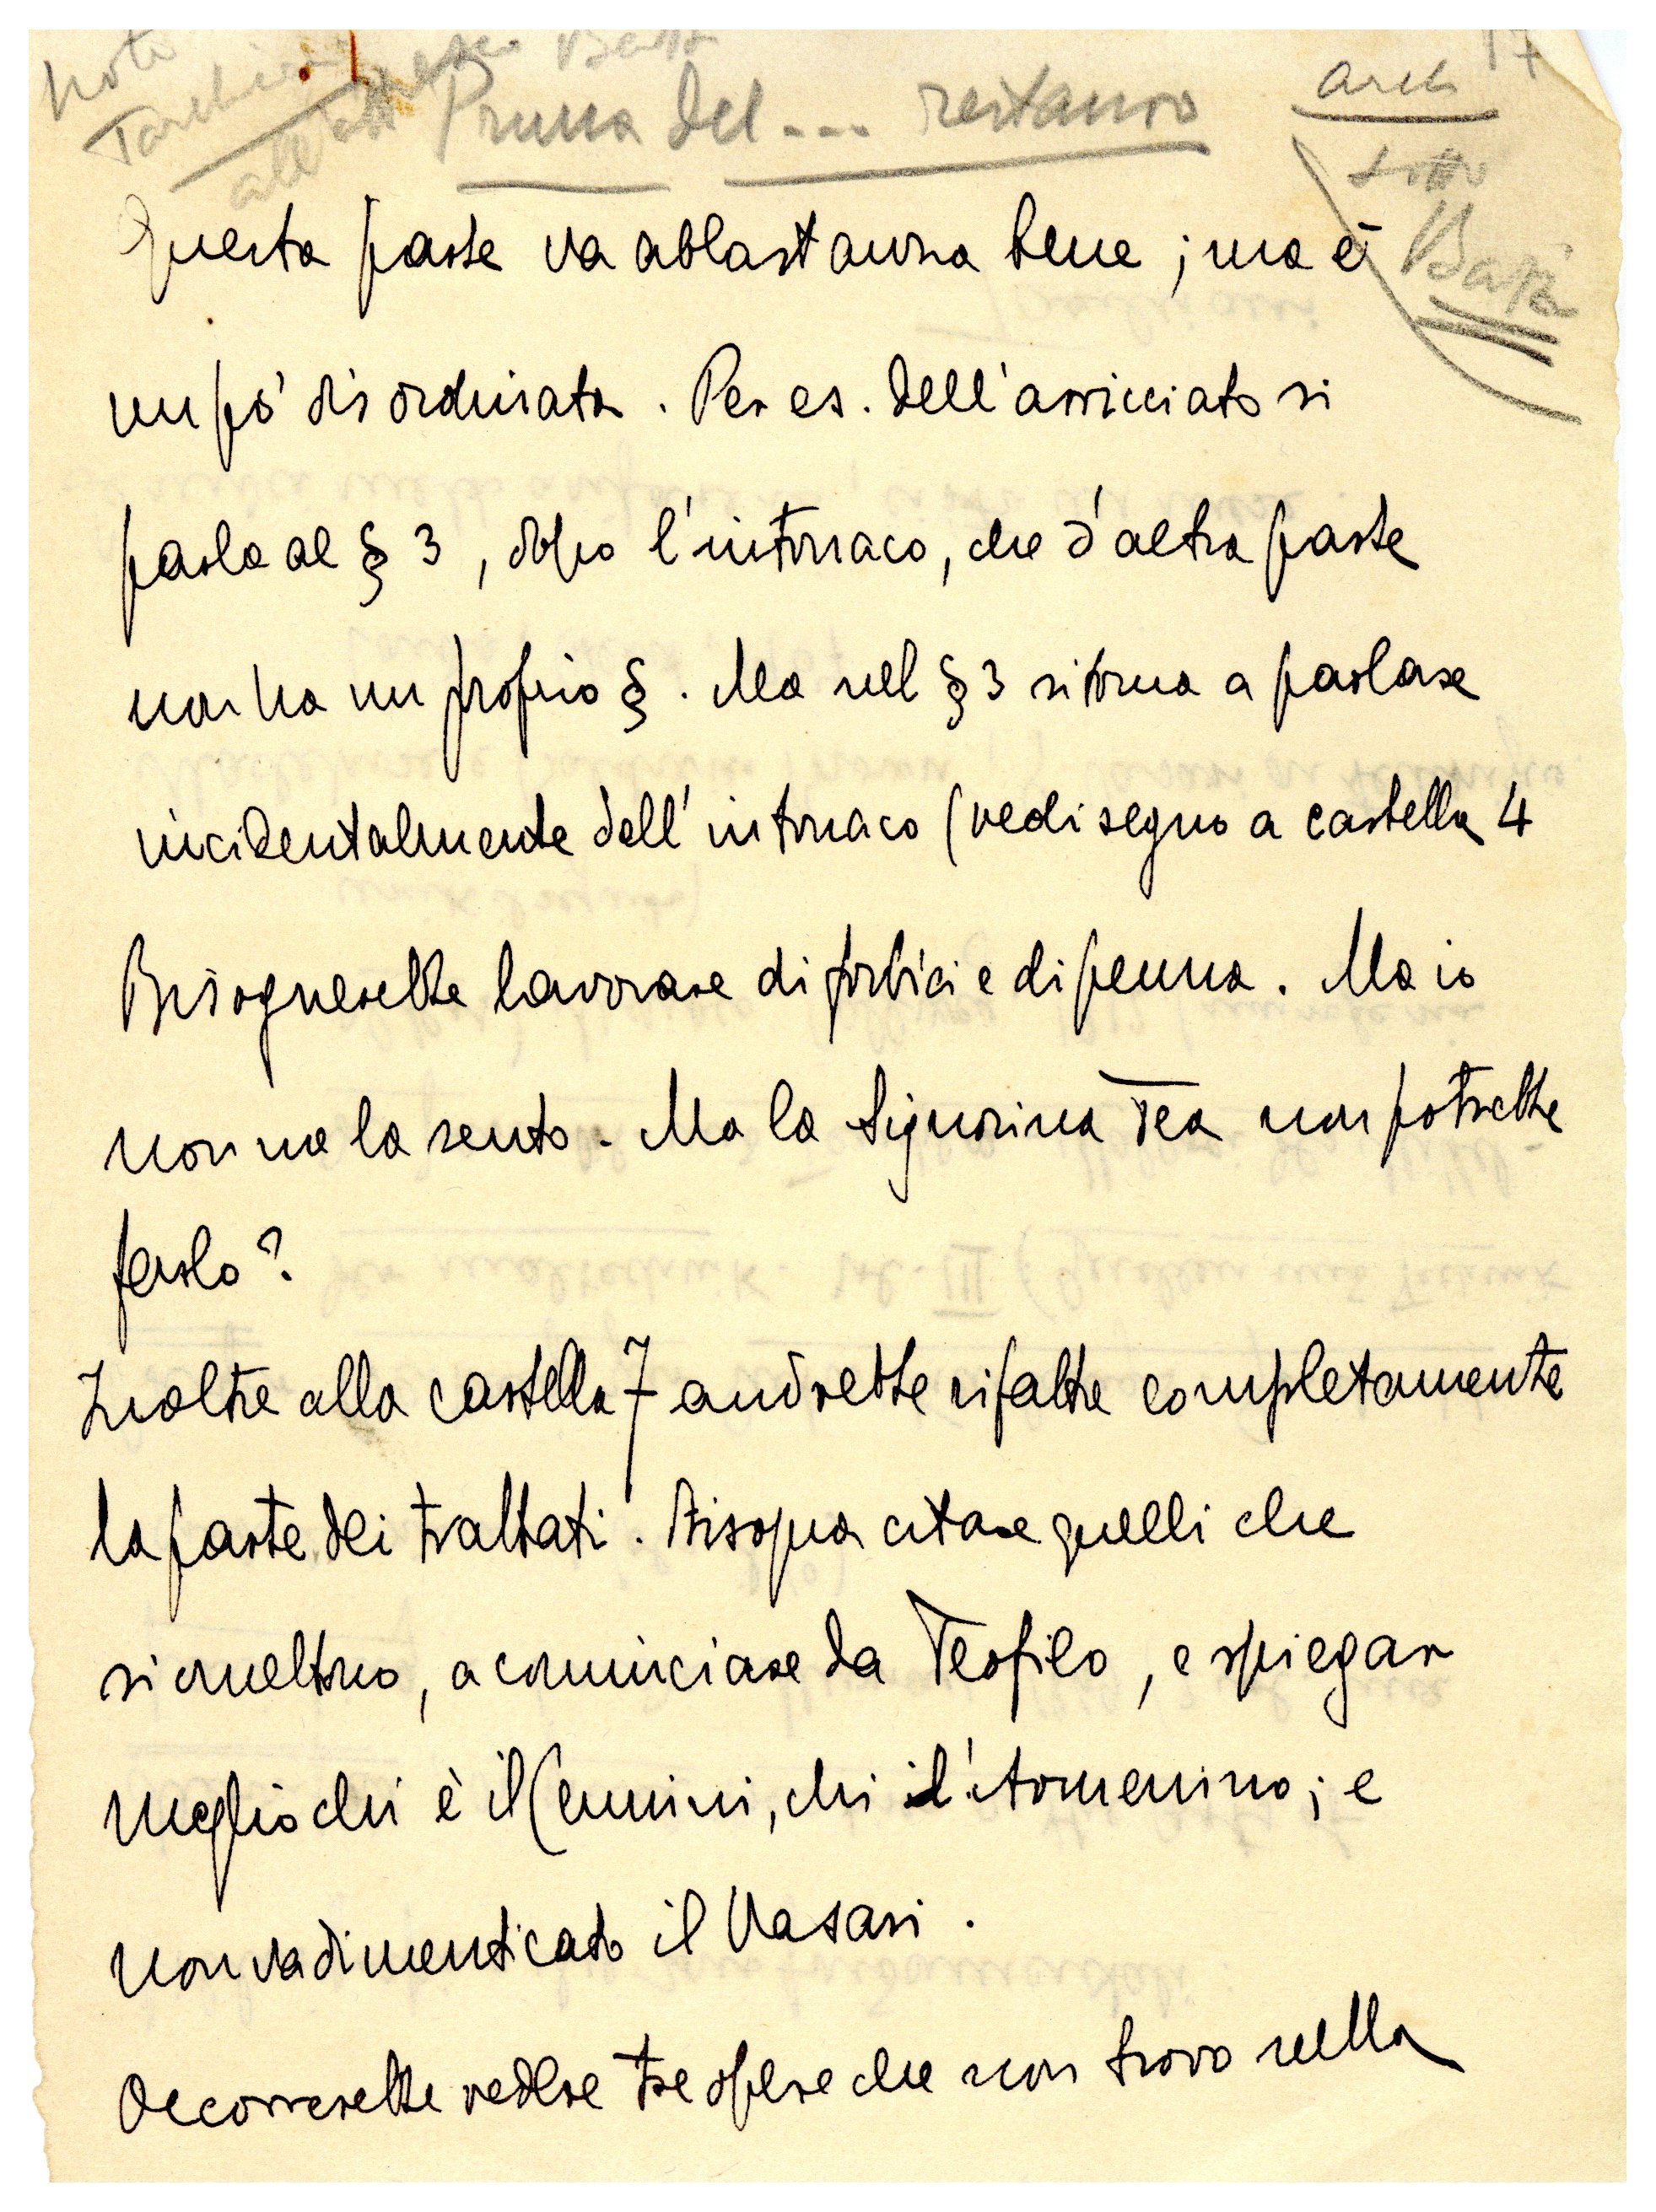 Note
Tarchiani
all'
Prima del ... restauro
arch 17
sotto
Questa parte va abbastanza bene ; ma è
un pò disordinata . Per es. dell'arricciato si
parla al § 3 , dopo l'intonaco, che d'altra parte
non ha un proprio § . Ma nel § 3 ritorna a parlare
incidentalmente dell'intonaco (vedi segno a cartella 4
Bisognerebbe lavorare di forbici e di penna . Ma io
non me la sento . Ma la Signorina Tea non potrebbe
farlo ?
Inoltre alla cartella 7 andrebbe rifatta completamente
la parte dei trattati . Bisogna citare quelli che
si omettono, a cominciare da Teofilo , e spiegar
meglio chi è il Cennini, chi l'Armenino ; e
non va dimenticato il Vasari .
Occorrerebbe vedere tre opere che non trovo nella